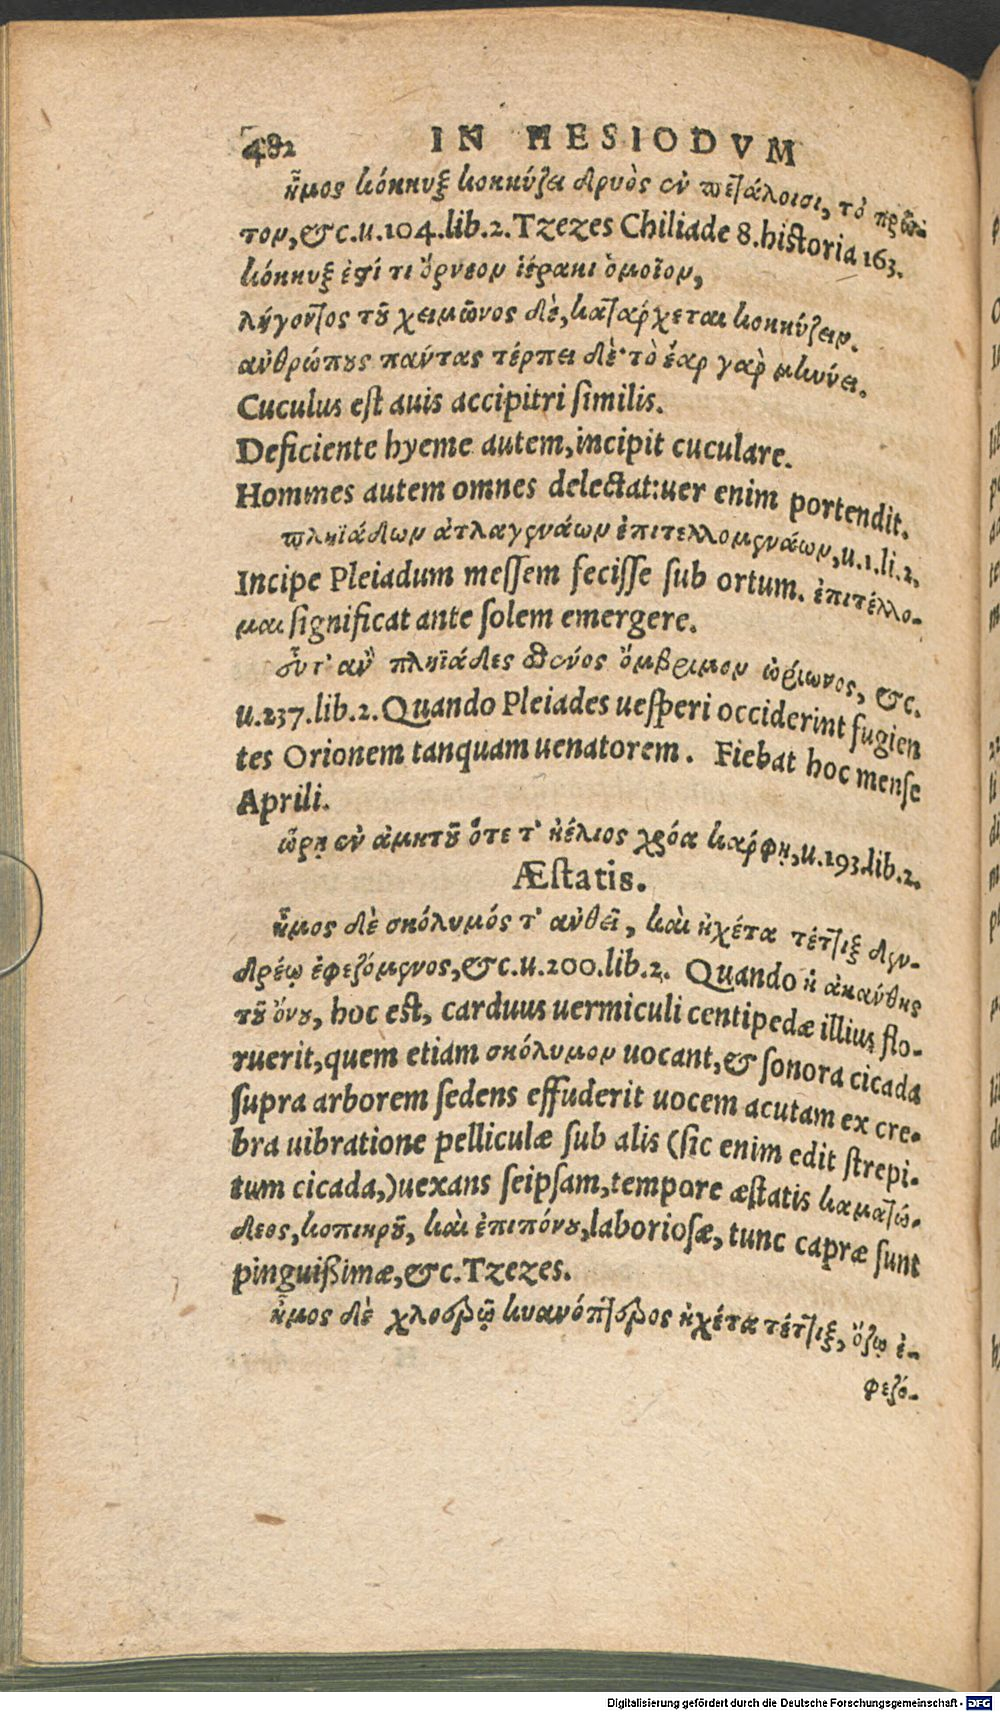 482 IN HESIODVM
ἦμος κόκκυξ κοκκύζει δρυὸς ἐν πετάλοισι, τὸ πρῶ-
τον, &c.u.104.lib.2. Tzezes Chiliade 8.historia 163.
κόκκυξ ἐστί τι ὄρνεον ἱέρακι ὁμοῖον,
λήγοντος τοῦ χειμῶνος δὲ, κατάρχεται κοκκύζειν.
ανθρώπους παύτας τέρπει δὲ· τὸ ἔαρ γαρ μηνύει.
Cuculus est auis accipitri similis.
Deficiente hyeme autem, incipit cuculare.
Hommes autem omnes delectat: uer enim portendit.
πληϊάδων ἀτλαγενάων ἐπιτελλομενάων, u.1.li.2.
Incipe Pleiadum messem fecisse sub ortum. ἐπιτέλλο-
μαι significat ante solem emergere.
εὖτ' αν πληϊάδες σθένος ὄμβριμον ὠρίωνος, &c.
u.237.lib.2. Quando Pleiades uesperi occiderint fugien
tes Orionem tanquam uenatorem. Fiebat hoc mense
Aprili.
ὥρῃ ἐν ἀμητοῦ ὅτε τ' ἠέλιος χρόα κάρφῃ, u.193.lib.2.
Æstatis.
ἦμος δὲ σκόλυμός τ' ανθεῖ, καὶ ἠχέτα τέττιξ δεν-
δρέῳ ἐφεζόμενος, &c.u.200.lib.2. Quando ἡ ἀκαύθης
τοῦ ὄνου, hoc est, carduus uermiculi centipedæ illius flo-
ruerit, quem etiam σκόλυμον uocant, & sonora cicada
supra arborem sedens effuderit uocem acutam ex cre-
bra uibratione pelliculæ sub alis (sic enim edit strepi-
tum cicada,) uexans seipsam, tempore æstatis καματώ-
δεος, κοπικροῦ, καὶ ἐπιπόνου, laboriosæ, tunc capræ sunt
pinguißimæ, &c. Tzezes.
ἦμος δὲ χλοερῷ κυανόπτερος ἠχέτα τέττιξ, ὄζῳ ἐ-
φεζό-
Digitalisierung gefördert durch die Deutsche Forschungsgemeinschaft - DFG